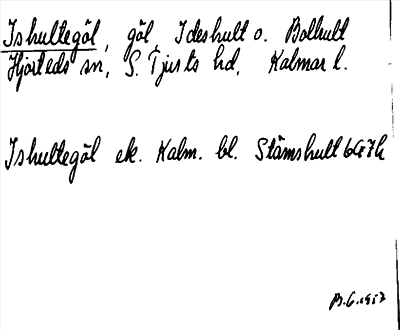 Ishultegöl, göl, Ideshult o. Bolhult
Hjorteds sn, S. Tjusts hd, Kalmar l.
Ishultegöl ek. Kalm. bl. Stämshult 6G7h
B.G. 1957